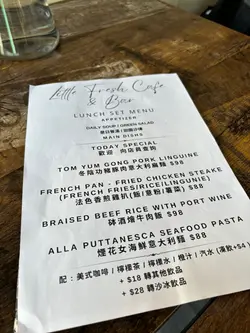 Little Fresh Cafe
& Bar
LUNCH SET MENU
APPETIZER
DAILY SOUP / GREEN SALAD
是日餐湯 / 田園沙律
MAIN DISHS
TODAY SPECIAL
歡迎 向店員查詢
TOM YUM GONG PORK LINGUINE
冬陰功豬頸肉意大利扁麵 $88
FRENCH PAN - FRIED CHICKEN STEAKE
(FRENCH FRIES/RICE/LINGUINE)
法色香煎雞扒(飯/意粉/薯菜) $88
BRAISED BEEF RICE WITH PORT WINE
砵酒燴牛肉飯 $98
ALLA PUTTANESCA SEAFOOD PASTA
煙花女海鮮意大利麵 $98
配 : 美式咖啡 / 檸檬茶 / 檸檬水 / 橙汁 / 汽水 (凍飲+$4)
+ $18 轉其他飲品
+ $28 轉沙冰飲品